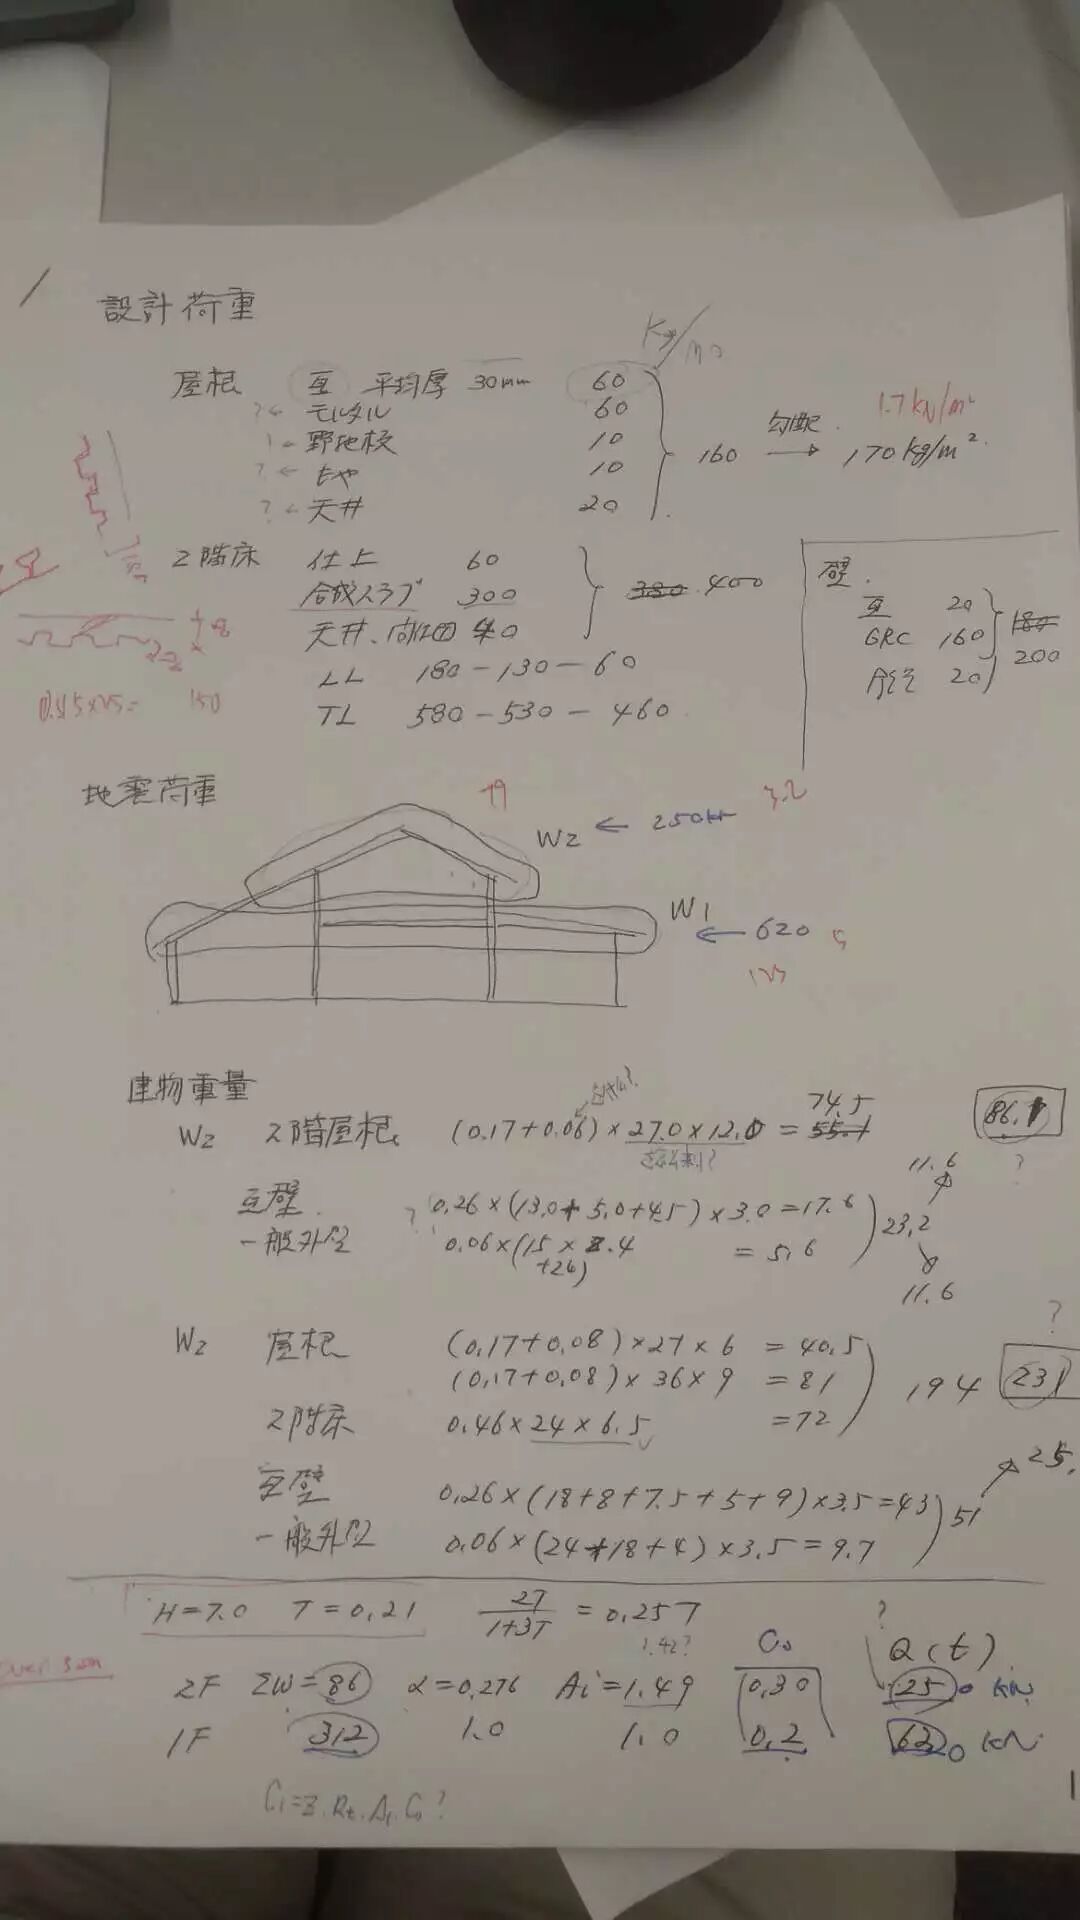 設計荷重
Kg/m2
屋根 瓦 平均厚 30mm 60
?← モルタル 60
野地板 10
?← もや 10
?← 天井 20
160 勾配 → 170kg/m²
1.7kN/m²
2階床 仕上 60
合成スラブ 300
天井、間仕切 40
380 400
LL 180-130-60
TL 580-530-460
壁
瓦 20
GRC 160
180
200
20
150
地震荷重
W2 ← 250kN
3.2
W1 ← 620
建物重量
W2 2階屋根 (0.17+0.06)×27.0×12.0=55.1
74.5
86.1
瓦壁 0.26×(13.0+5.0+4.5)×3.0=17.6
?
一般外壁 0.06×(15×2.4=5.6
+24)
23.2
11.6
11.6
?
W2 屋根 (0.17+0.08)×27×6=40.5
(0.17+0.08)×36×9=81
2階床 0.46×24×6.5=72
194
231
?
瓦壁 0.26×(18+8+7.5+5+9)×3.5=43
一般外壁 0.06×(24+18+4)×3.5=9.7
51
25.
H=7.0 T=0.21 2T/1+3T=0.257
1.42?
C₀ Q(t)
?
2F ΣW=86 α=0.276 Ai=1.49 0.30 250 kN
1F 312 1.0 1.0 0.2 620 kN
Ci=Z.Rt.Ai.C₀?